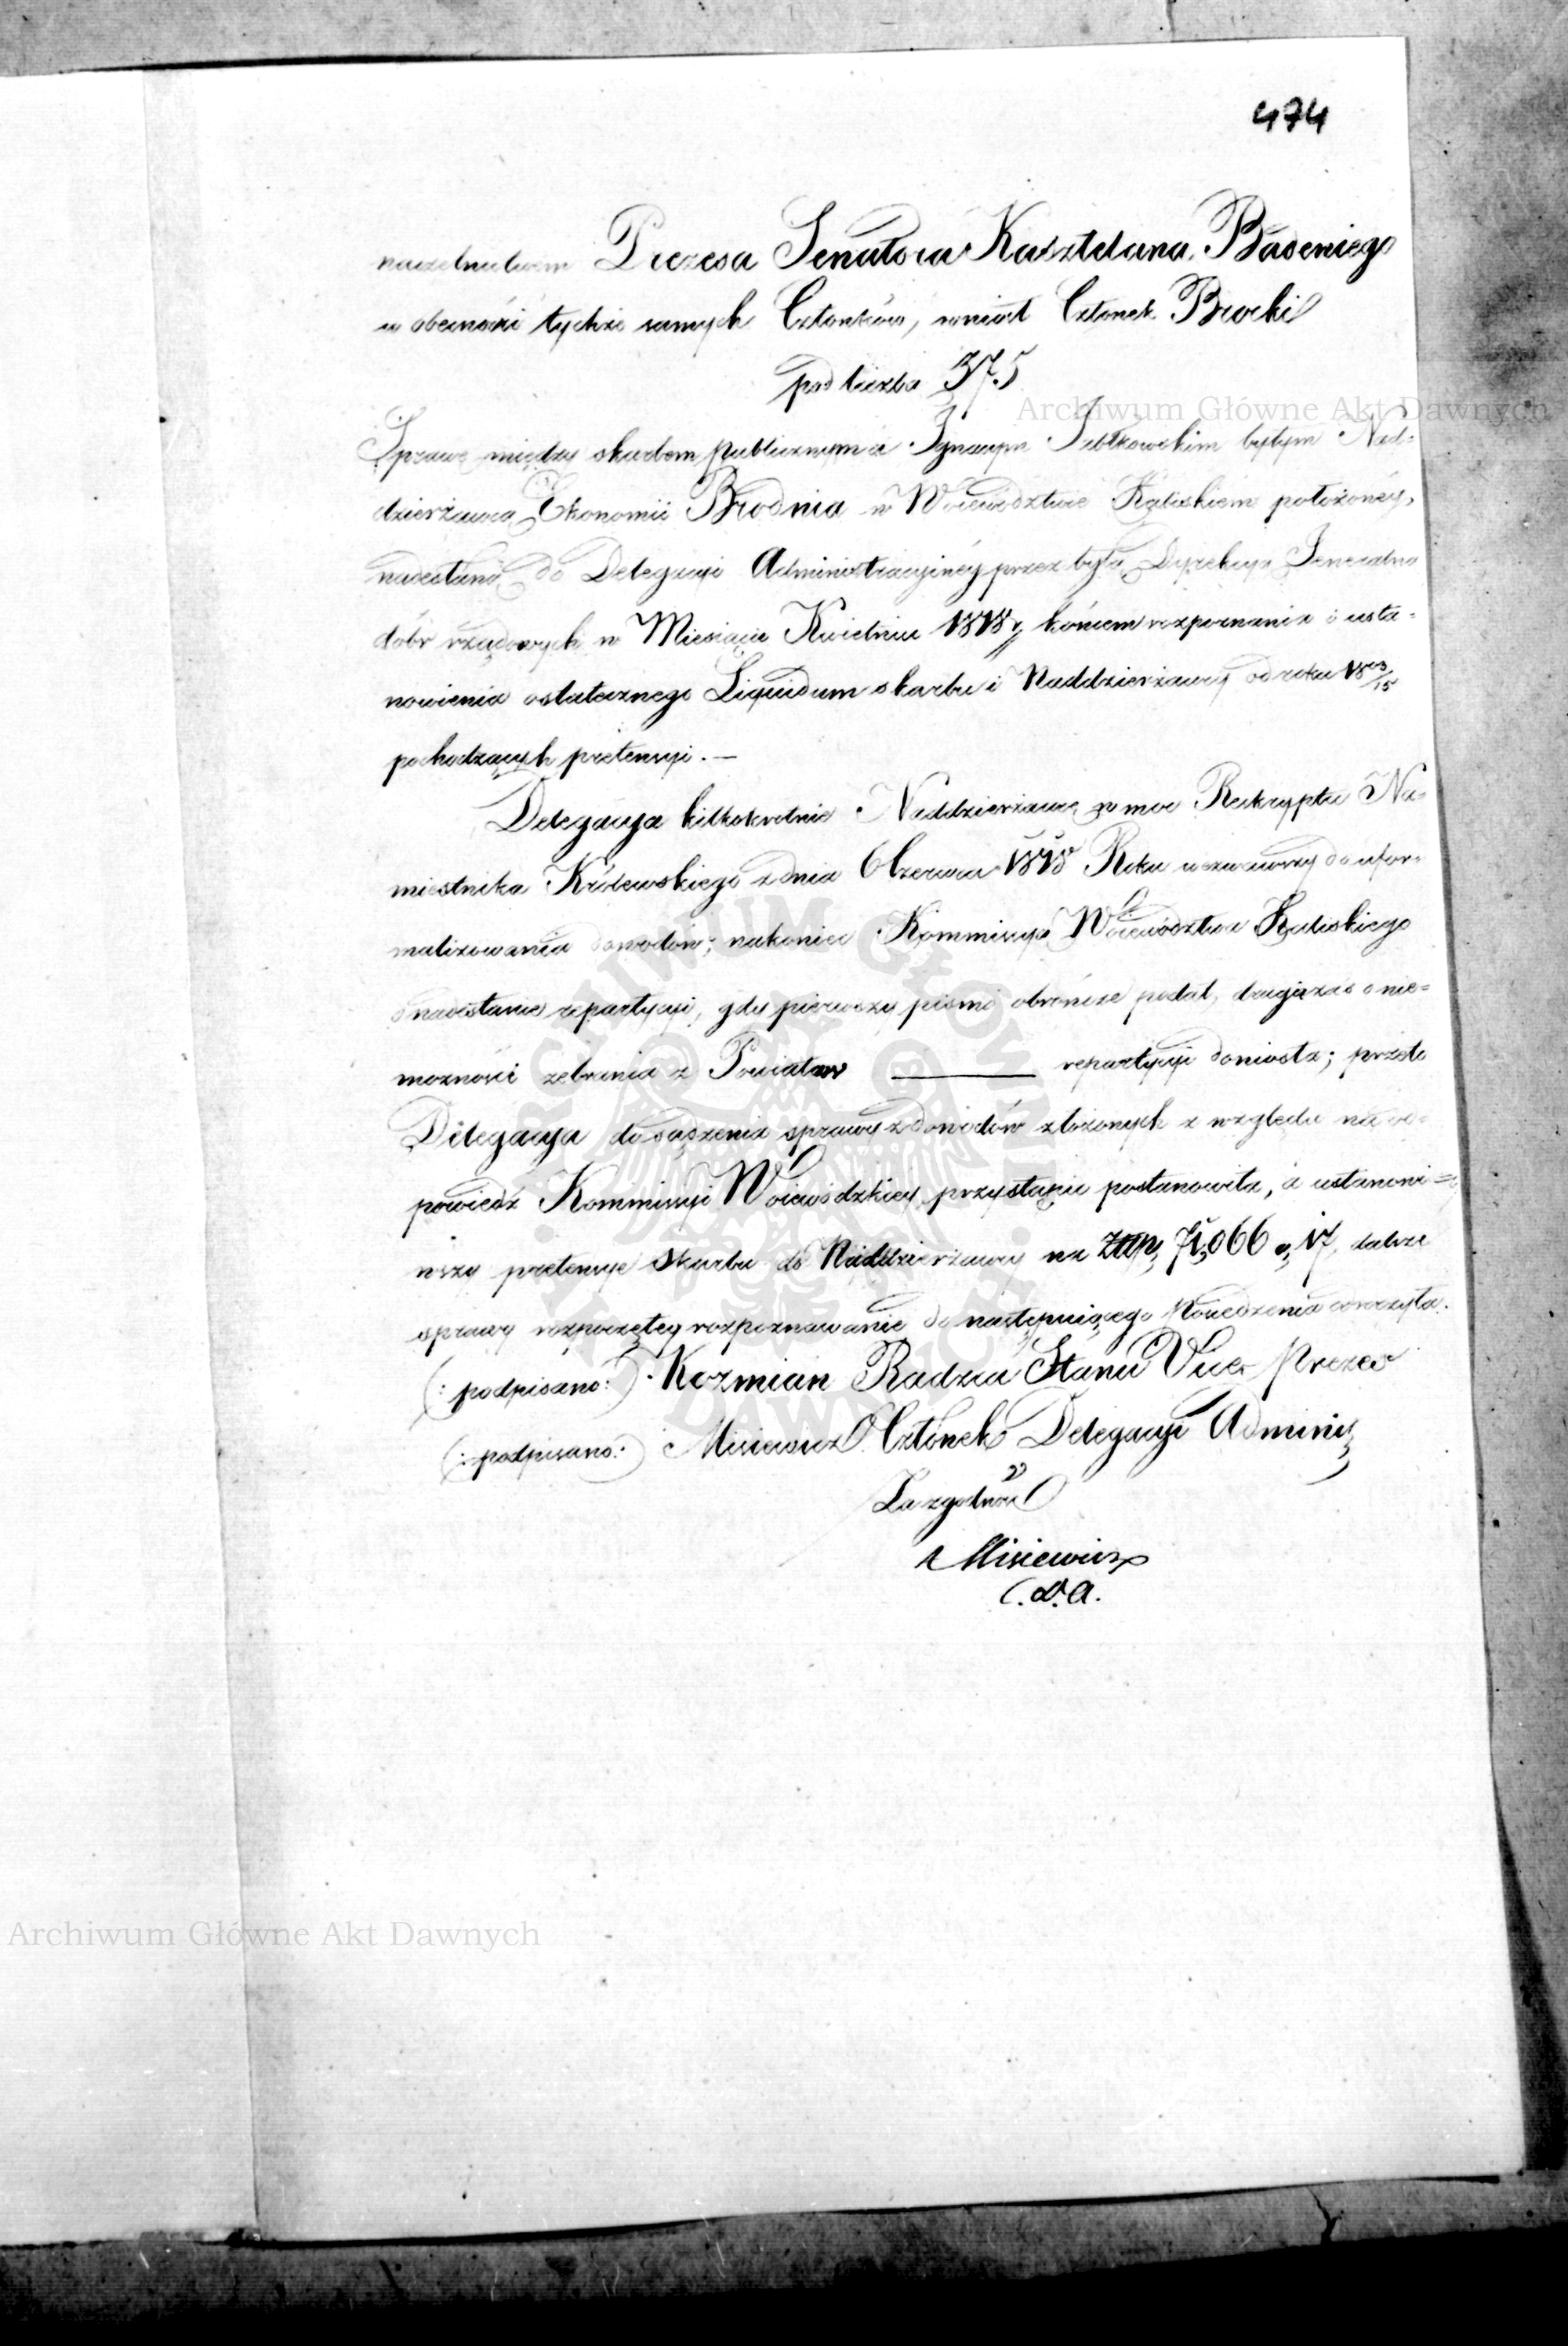 474
naczelnictwem Prezesa Senatora Kasztelana Badeniego
w obecności tychże samych Członków, wniósł Członek Brocki
pod liczbą 375
Archiwum Główne Akt Dawnych
Sprawę między skarbem publicznym a Ignacym Jabłkowskim byłym Nad=
dzierżawcą Ekonomii Brodnia w Województwie Kaliskiem położoney,
nadesłaną do Delegacyi Administracyiney przez byłą Dyrekcyę Jeneralną
dóbr rządowych w Miesiącu Kwietniu 1818 r. końcem rozpoznania i usta=
nowienia ostatecznego Liquidum skarbu i Naddzierżawcy od roku
pochodzących pretensyi. —
Delegacya kilkokrotnie Naddzierżawcę na moc Reskryptu Na=
miestnika Królewskiego z dnia 6 Czerwca 1818 Roku wezwawszy do ufor=
malizowania dowodów; nakoniec Kommissyę Województwa Kaliskiego
o nadesłanie repartycyi, gdy pierwszy pismo obrończe podał, druga zaś o nie=
możności zebrania z Powiatów ——— repartycyi doniosła; przeto
Delegacya do sądzenia sprawy z dowodów złożonych z względu na od=
powiedź Kommissyi Woiewódzkiey przystąpić postanowiła, a ustanowi=
wszy pretensye Skarbu do Naddzierżawcy na Złłp. 71,066 g. 17, dalsze
sprawy rozpoczętey rozpoznawanie do następuiącego Posiedzenia odroczyła.
(: podpisano:) Kozmian Radzca Stanu Vice Prezes
(: podpisano:) Misiewicz Członek Delegacyi Adminis
Za zgodność
Misiewicz
C. D. A.
Archiwum Główne Akt Dawnych
ARCHIWUM GŁÓWNE AKT DAWNYCH